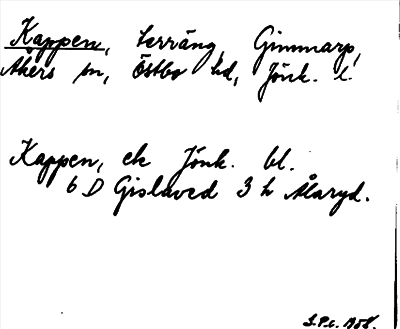 Kappen, terräng, Gimmarp,
Åkers sn, Östbo hd, Jönk. l.
Kappen, ek Jönk. bl.
6 D Gislaved 3 h Ålaryd.